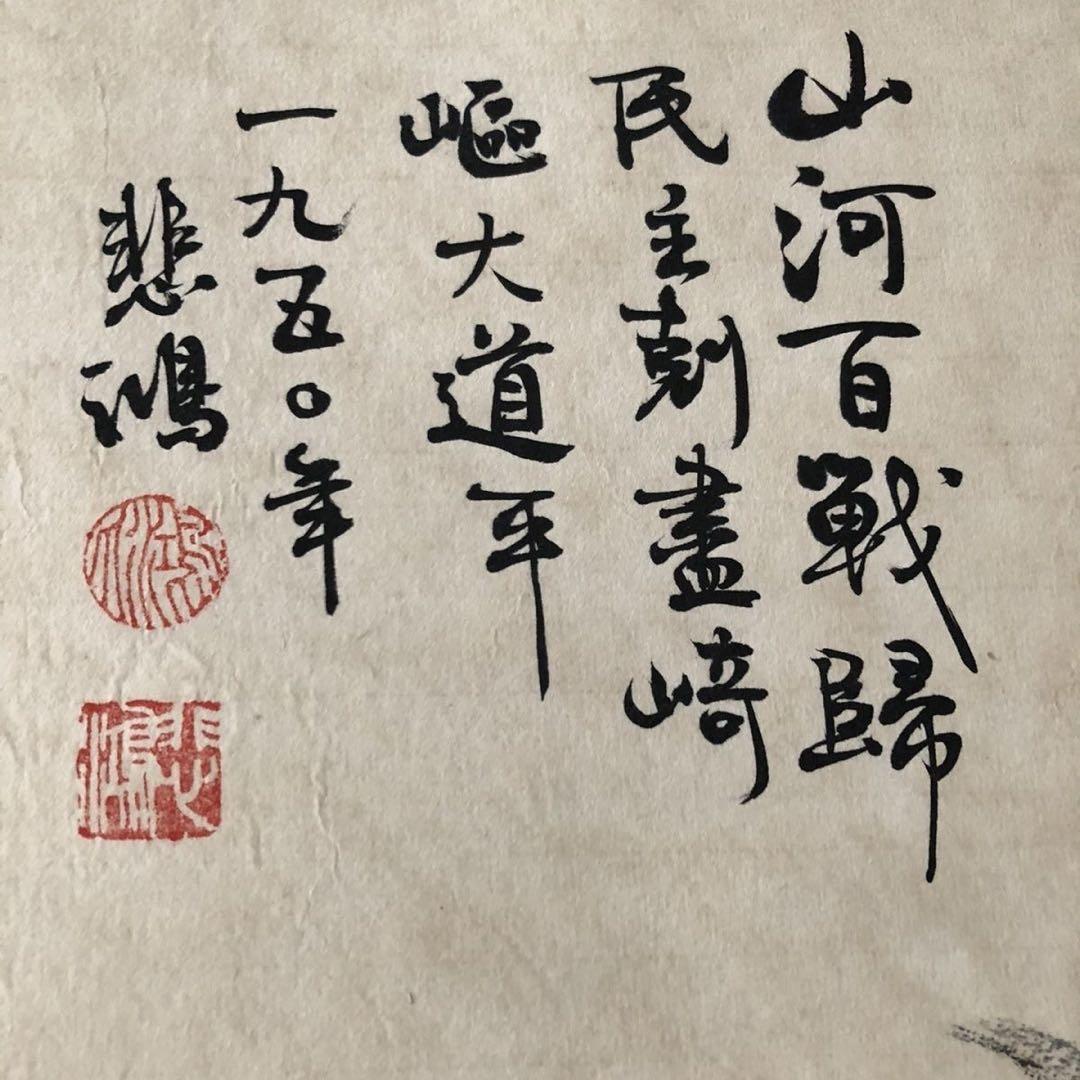 山河百戰歸
民主剷盡崎
嶇大道平
一九五〇年
悲鴻
悲鴻